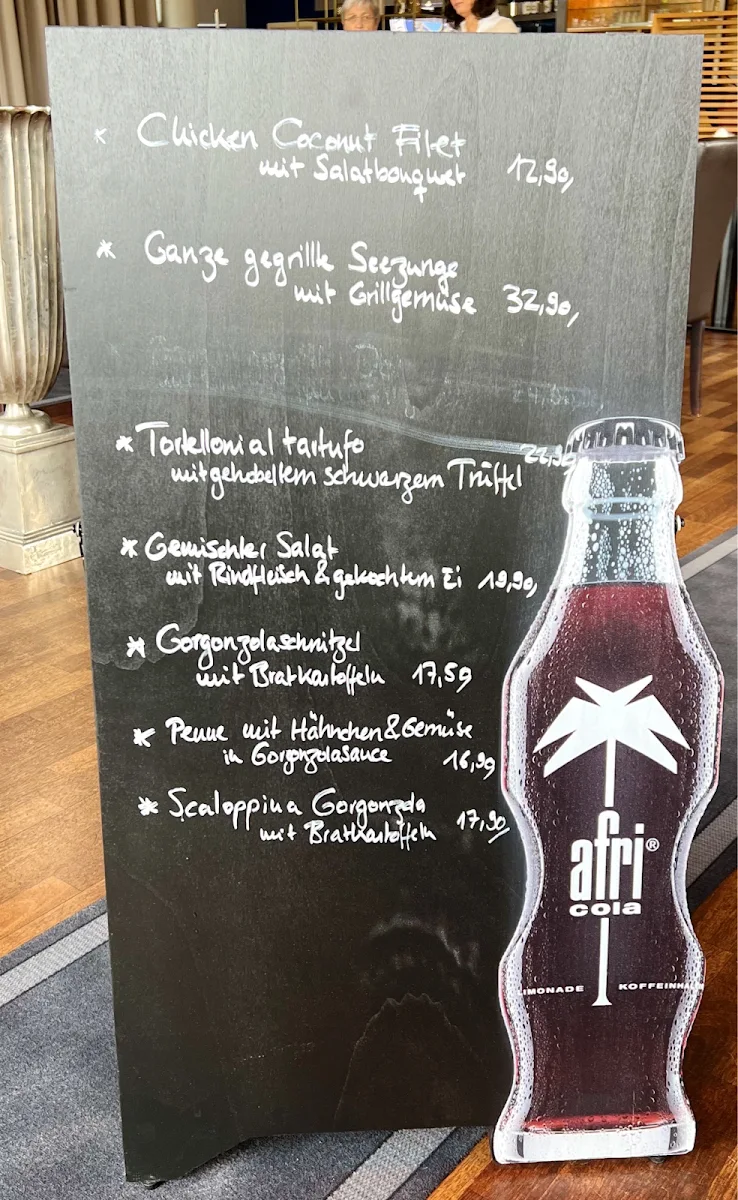 * Chicken Coconut Filet
mit Salatbouquet 12,90,
* Ganze gegrillte Seezunge
mit Grillgemüse 32,90,
* Tortelloni al tartufo
mit gehobeltem schwarzem Trüffel
* Gemischter Salat
mit Rindfleisch & gekochtem Ei 19,90,
* Gorgonzolaschnitzel
mit Bratkartoffeln 17,59
* Penne mit Hähnchen & Gemüse
in Gorgonzolasauce 16,99
* Scaloppina Gorgonzola
mit Bratkartoffeln 17,90
afri®
cola
LIMONADE KOFFEINHA